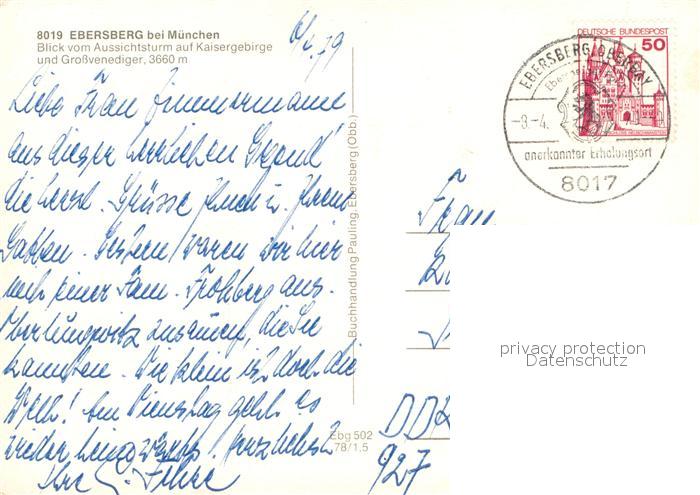 8019 EBERSBERG bei München
Blick vom Aussichtsturm auf Kaisergebirge
und Großvenediger, 3660 m
Liebe Frau Zimmermann
aus dieser herrlichen Gegend
die herzl. Grüsse Ihnen u. Ihrem
Gatten. Gestern waren wir hier
mit einer Fam. Frohberg aus
Oberlungwitz zusammen, die Sie
kannten. Wie klein ist doch die
Welt! Am Dienstag geht es
wieder heimwärts. Herzlichst
Ihre
Buchhandlung Pauling, Ebersberg (Obb.)
Ebg 502
78/1,5
DEUTSCHE BUNDESPOST
50
EBERSBERG, OBERBAY
-8.-4.
anerkannter Erholungsort
8017
Frau
DDR
927
privacy protection
Datenschutz